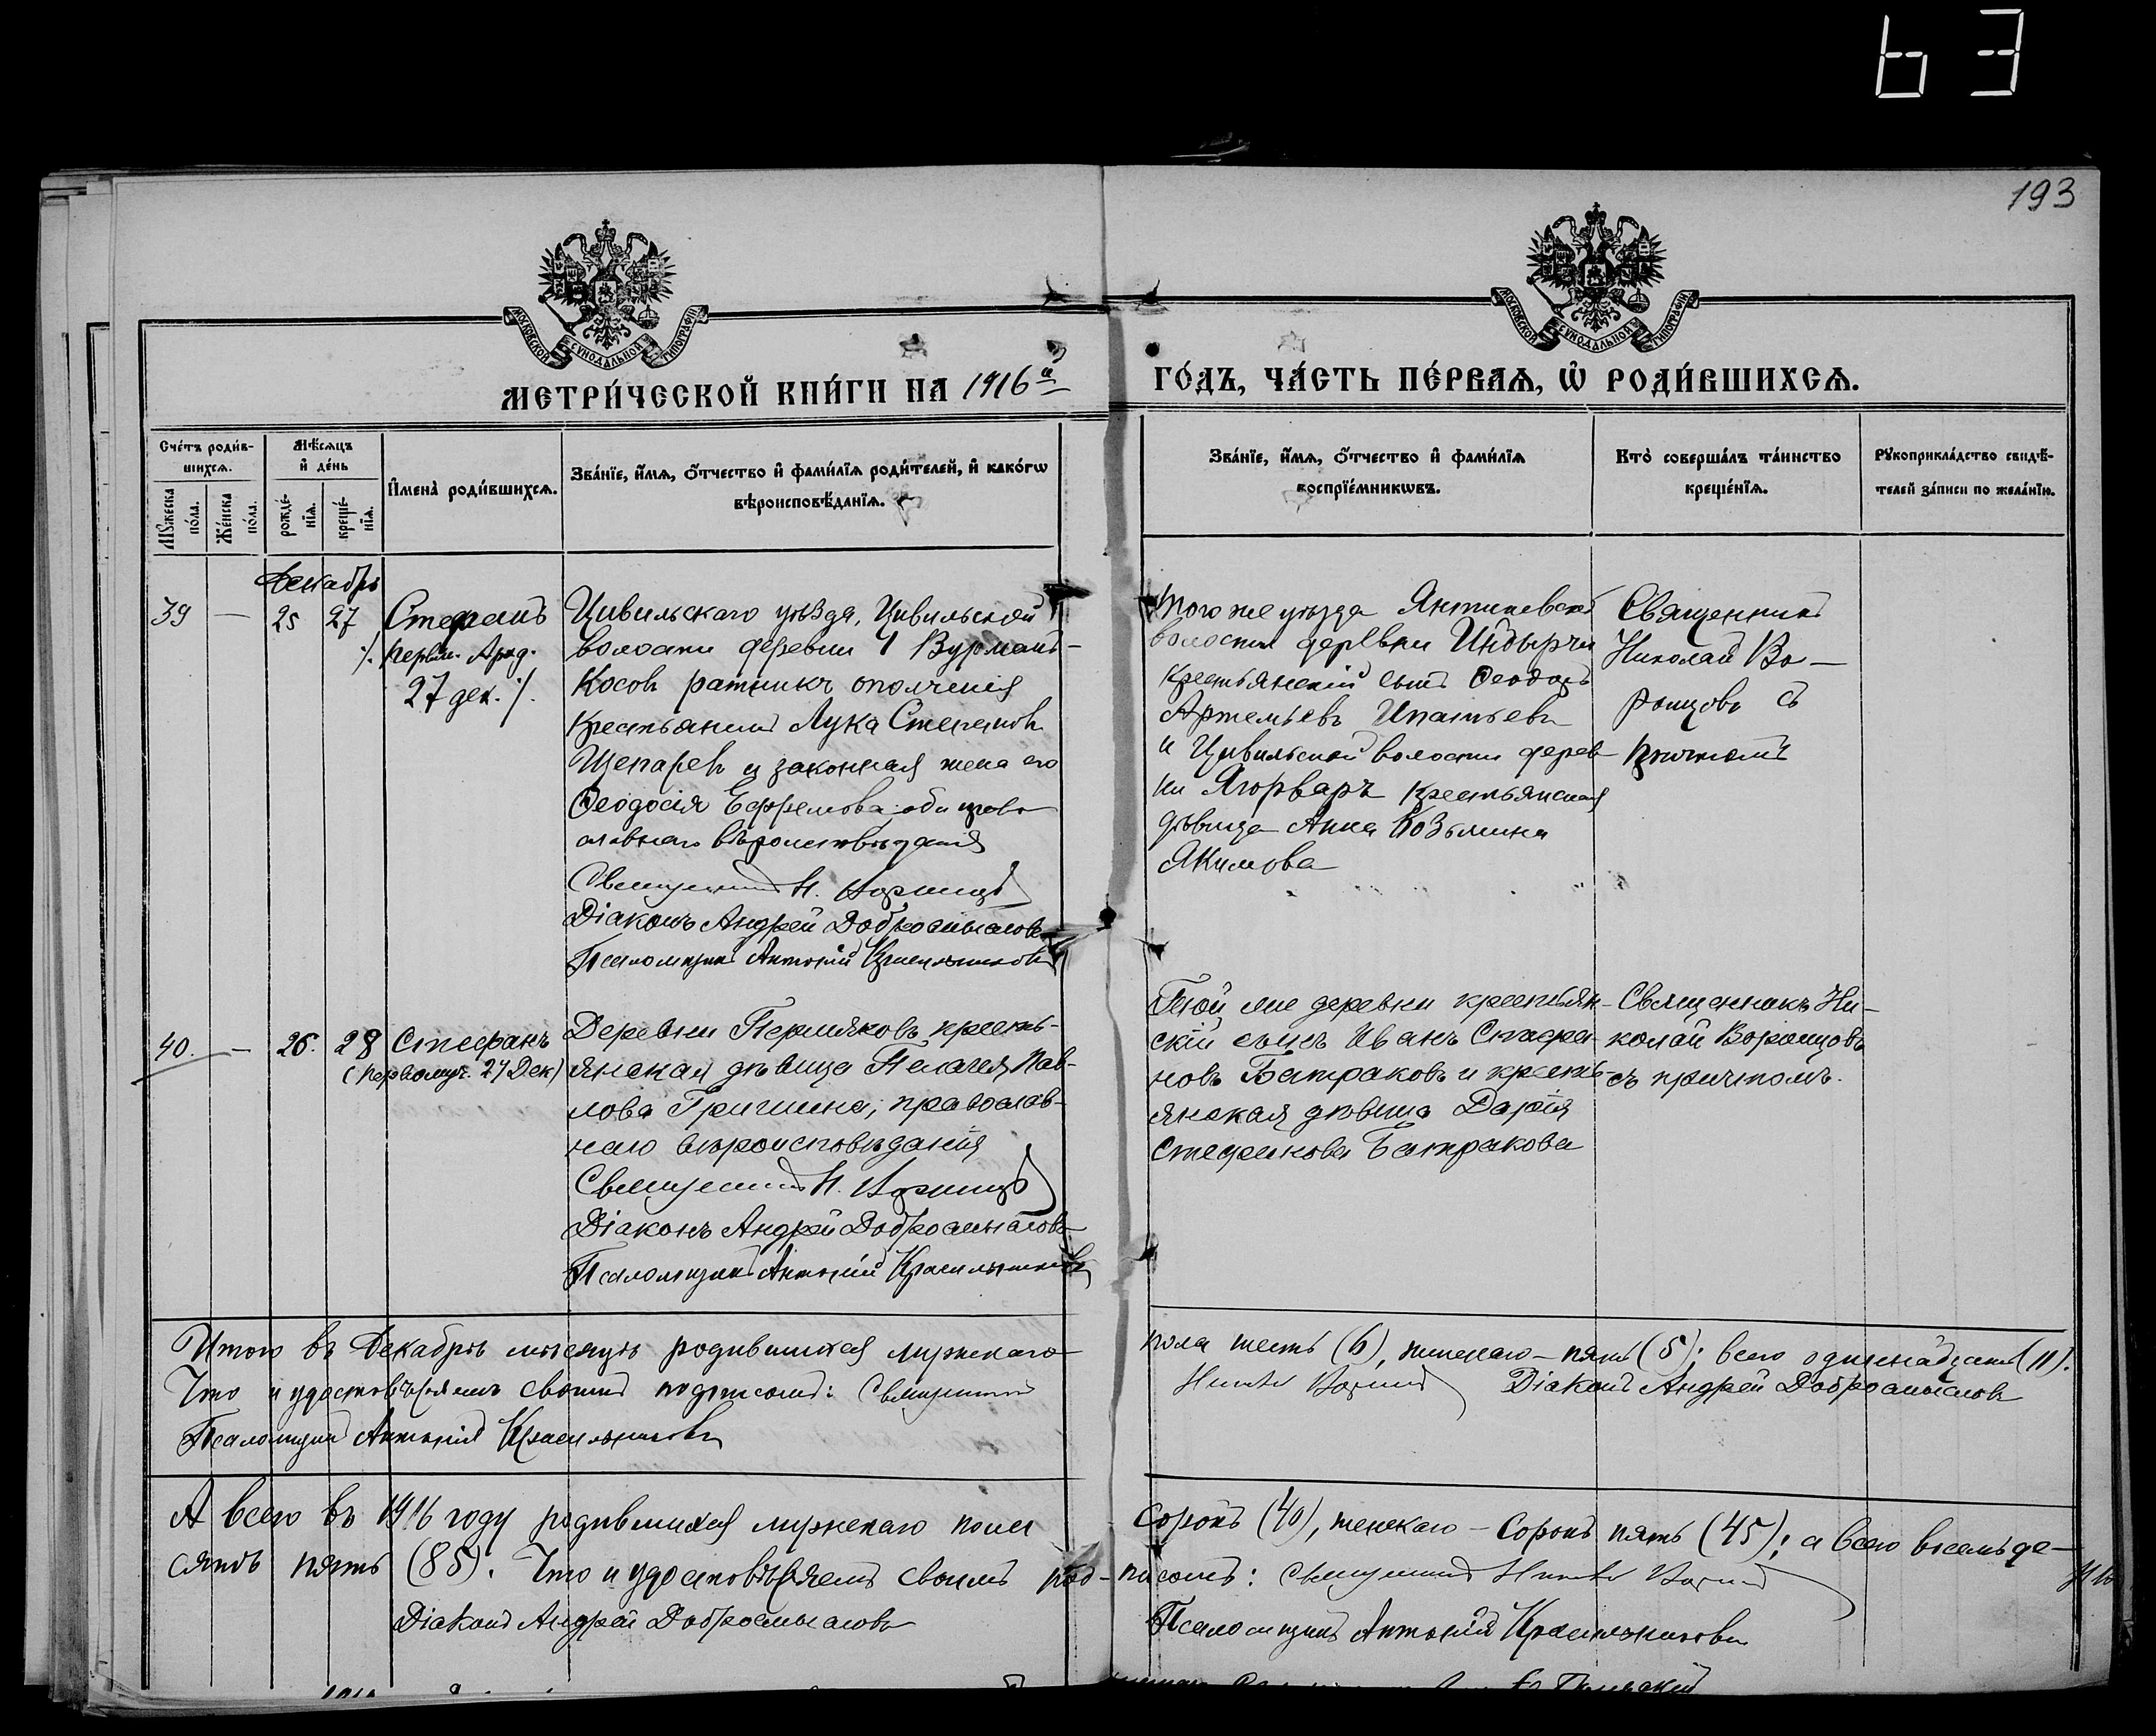 63
193
МОСКОВСКОЙ СѴНОДАЛЬНОЙ ТИПОГРАФІИ
МОСКОВСКОЙ СѴНОДАЛЬНОЙ ТИПОГРАФІИ
МЕТРИ́ЧЕСКОЙ КНИ́ГИ НА 1916й
ГО́ДЪ, ЧА́СТЬ ПЕ́РВАѦ, Ѡ҆ РОДИ́ВШИХСѦ.
Сче́тъ роди́в-
шихсѧ.
Мѣ́сѧцъ
и҆ де́нь
И҆мена̀ роди́вшихсѧ.
Зва́нїе, и҆́мѧ, ѻ҆́тчество и҆ фами́лїѧ роди́телей, и҆ како́гѡ
вѣроисповѣ́данїѧ.
Мꙋ́жеска
по́ла.
Же́нска
по́ла.
рожде́-
нїѧ.
креще́-
нїѧ.
Зва́нїе, и҆́мѧ, ѻ҆́тчество и҆ фами́лїѧ
воспрїе́мникѡвъ.
Кто̀ соверша́лъ та́инство
креще́нїѧ.
Рꙋкоприкла́дство свидѣ́-
телей за́писи по жела́нїю.
Декабрь
39 — 25 27 Стефанъ
27 дек.
Цивильскаго уѣзда, Цивильской
волости деревни
Косовъ ратникъ ополченія
крестьянинъ Лука Степановъ
и законная жена его
Ѳеодосія Ефремова, оба право
славнаго вѣроисповѣданія
Священникъ Н. Воронцовъ
Діаконъ Андрей Добросмысловъ
Псаломщикъ Антоній Красильниковъ
того же уѣзда
волости деревни
крестьянскій сынъ Ѳеодоръ
Артемьевъ Ипатьевъ
и Цивильской волости дерев-
ни крестьянская
дѣвица Анна Козьмина
Якимова
Священникъ
Николай Во-
ронцовъ съ
причтомъ
40. — 26. 28 Стефанъ
(первомуч. 27 Дек)
Деревни Пермяковъ, кресть-
янская дѣвица Пелагея Пав-
лова Гришина, православ-
наго вѣроисповѣданія
Священникъ Н. Воронцовъ
Діаконъ Андрей Добросмысловъ
Псаломщикъ Антоній Красильниковъ
Той же деревни крестьян-
скій сынъ Иванъ Стефа-
новъ Батраковъ и кресть-
янская дѣвица Дарія
Стефанова Батракова
Священникъ Ни-
колай Воронцовъ
съ причтомъ.
Итого въ Декабрѣ мѣсяцѣ родившихся мужескаго
пола шесть (6), женскаго — пять (5); всего одиннадцать (11).
Что и удостовѣряемъ своимъ подписомъ: Священникъ
Діаконъ Андрей Добросмысловъ
Псаломщикъ Антоній Красильниковъ
А всего въ 1916 году родившихся мужескаго пола
сорокъ (40), женскаго — сорокъ пять (45); а всего восемьде-
сятъ пять (85). Что и удостовѣряемъ своимъ под-
писомъ: Священникъ
Діаконъ Андрей Добросмысловъ
Псаломщикъ Антоній Красильниковъ